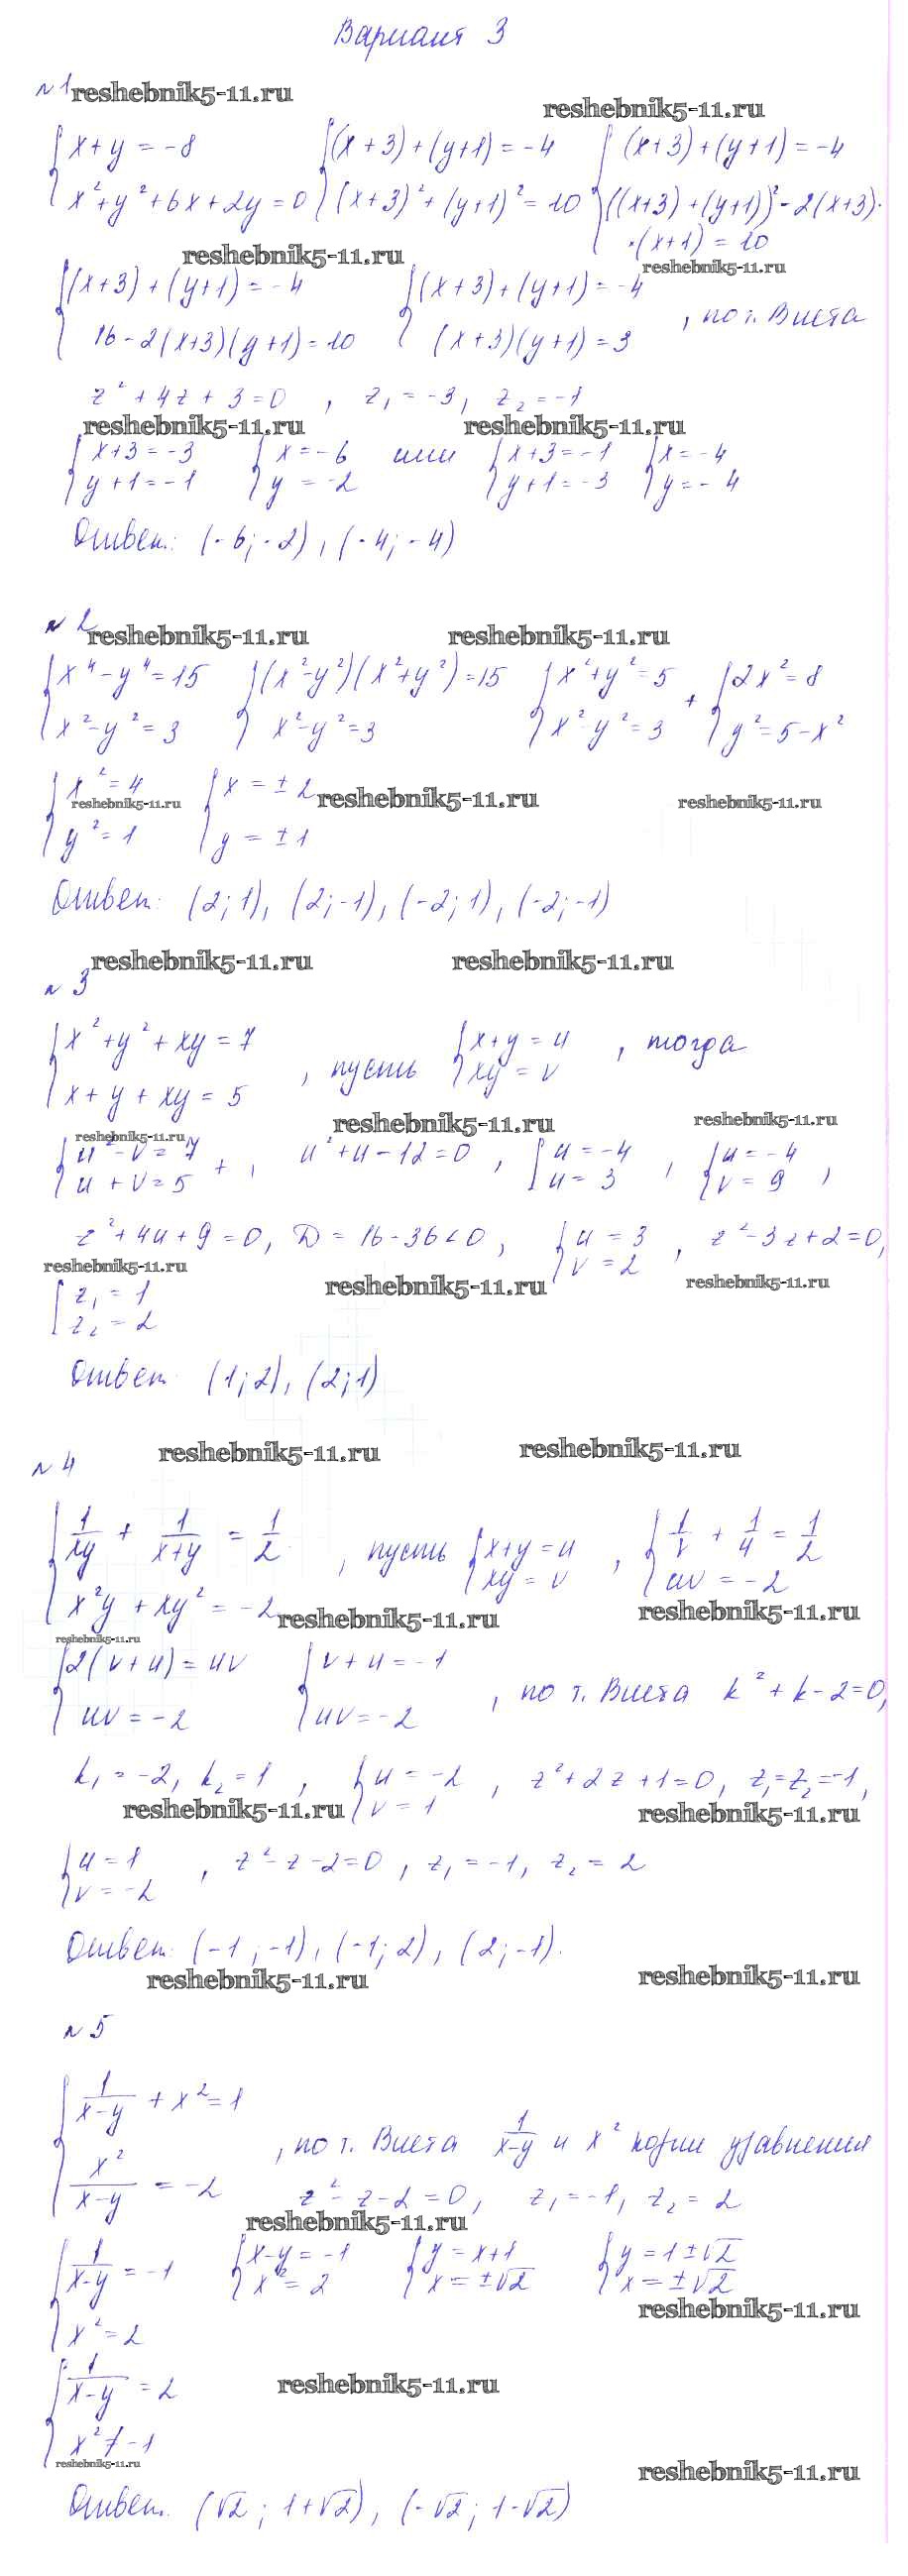 Вариант 3
№1 reshebnik5-11.ru reshebnik5-11.ru
{x+y=-8 {(x+3)+(y+1)=-4 {(x+3)+(y+1)=-4
x²+y²+6x+2y=0 (x+3)²+(y+1)²=10 ((x+3)+(y+1))²-2(x+3)·
·(x+1)=10
reshebnik5-11.ru reshebnik5-11.ru
{(x+3)+(y+1)=-4 {(x+3)+(y+1)=-4
16-2(x+3)(y+1)=10 (x+3)(y+1)=3 , по т. Виета
z²+4z+3=0, z₁=-3, z₂=-1
reshebnik5-11.ru reshebnik5-11.ru
{x+3=-3 {x=-6 или {x+3=-1 {x=-4
y+1=-1 y=-2 y+1=-3 y=-4
Ответ: (-6;-2), (-4;-4)
№2 reshebnik5-11.ru reshebnik5-11.ru
{x⁴-y⁴=15 {(x²-y²)(x²+y²)=15 {x²+y²=5 + {2x²=8
x²-y²=3 x²-y²=3 x²-y²=3 y²=5-x²
{x²=4 {x=±2
reshebnik5-11.ru reshebnik5-11.ru reshebnik5-11.ru
y²=1 y=±1
Ответ: (2;1), (2;-1), (-2;1), (-2;-1)
reshebnik5-11.ru reshebnik5-11.ru
№3
{x²+y²+xy=7 , пусть {x+y=u , тогда
x+y+xy=5 xy=v
reshebnik5-11.ru reshebnik5-11.ru reshebnik5-11.ru
{u²-v=7 + , u²+u-12=0, [u=-4 , {u=-4 ,
u+v=5 u=3 v=9
z²+4u+9=0, D=16-36<0, {u=3 , z²-3z+2=0,
v=2
reshebnik5-11.ru reshebnik5-11.ru reshebnik5-11.ru
[z₁=1
z₂=2
Ответ: (1;2), (2;1)
reshebnik5-11.ru reshebnik5-11.ru
№4
{1/xy + 1/(x+y) = 1/2 , пусть {x+y=u , {1/v + 1/u = 1/2
x²y+xy²=-2 xy=v uv=-2
reshebnik5-11.ru reshebnik5-11.ru
reshebnik5-11.ru
{2(v+u)=uv {v+u=-1
uv=-2 uv=-2 , по т. Виета k²+k-2=0,
k₁=-2, k₂=1 , {u=-2 , z²+2z+1=0, z₁=z₂=-1,
v=1
reshebnik5-11.ru reshebnik5-11.ru
{u=1 , z²-z-2=0, z₁=-1, z₂=2
v=-2
Ответ: (-1;-1), (-1;2), (2;-1).
reshebnik5-11.ru reshebnik5-11.ru
№5
{1/(x-y) + x²=1
x²/(x-y) = -2 , по т. Виета 1/(x-y) и x² корни уравнения
z²-z-2=0, z₁=-1, z₂=2
reshebnik5-11.ru
{1/(x-y)=-1 {x-y=-1 {y=x+1 {y=1±√2
x²=2 x²=2 x=±√2 x=±√2
reshebnik5-11.ru
{1/(x-y)=2
x²≠-1
reshebnik5-11.ru
reshebnik5-11.ru reshebnik5-11.ru
Ответ: (√2; 1+√2), (-√2; 1-√2)